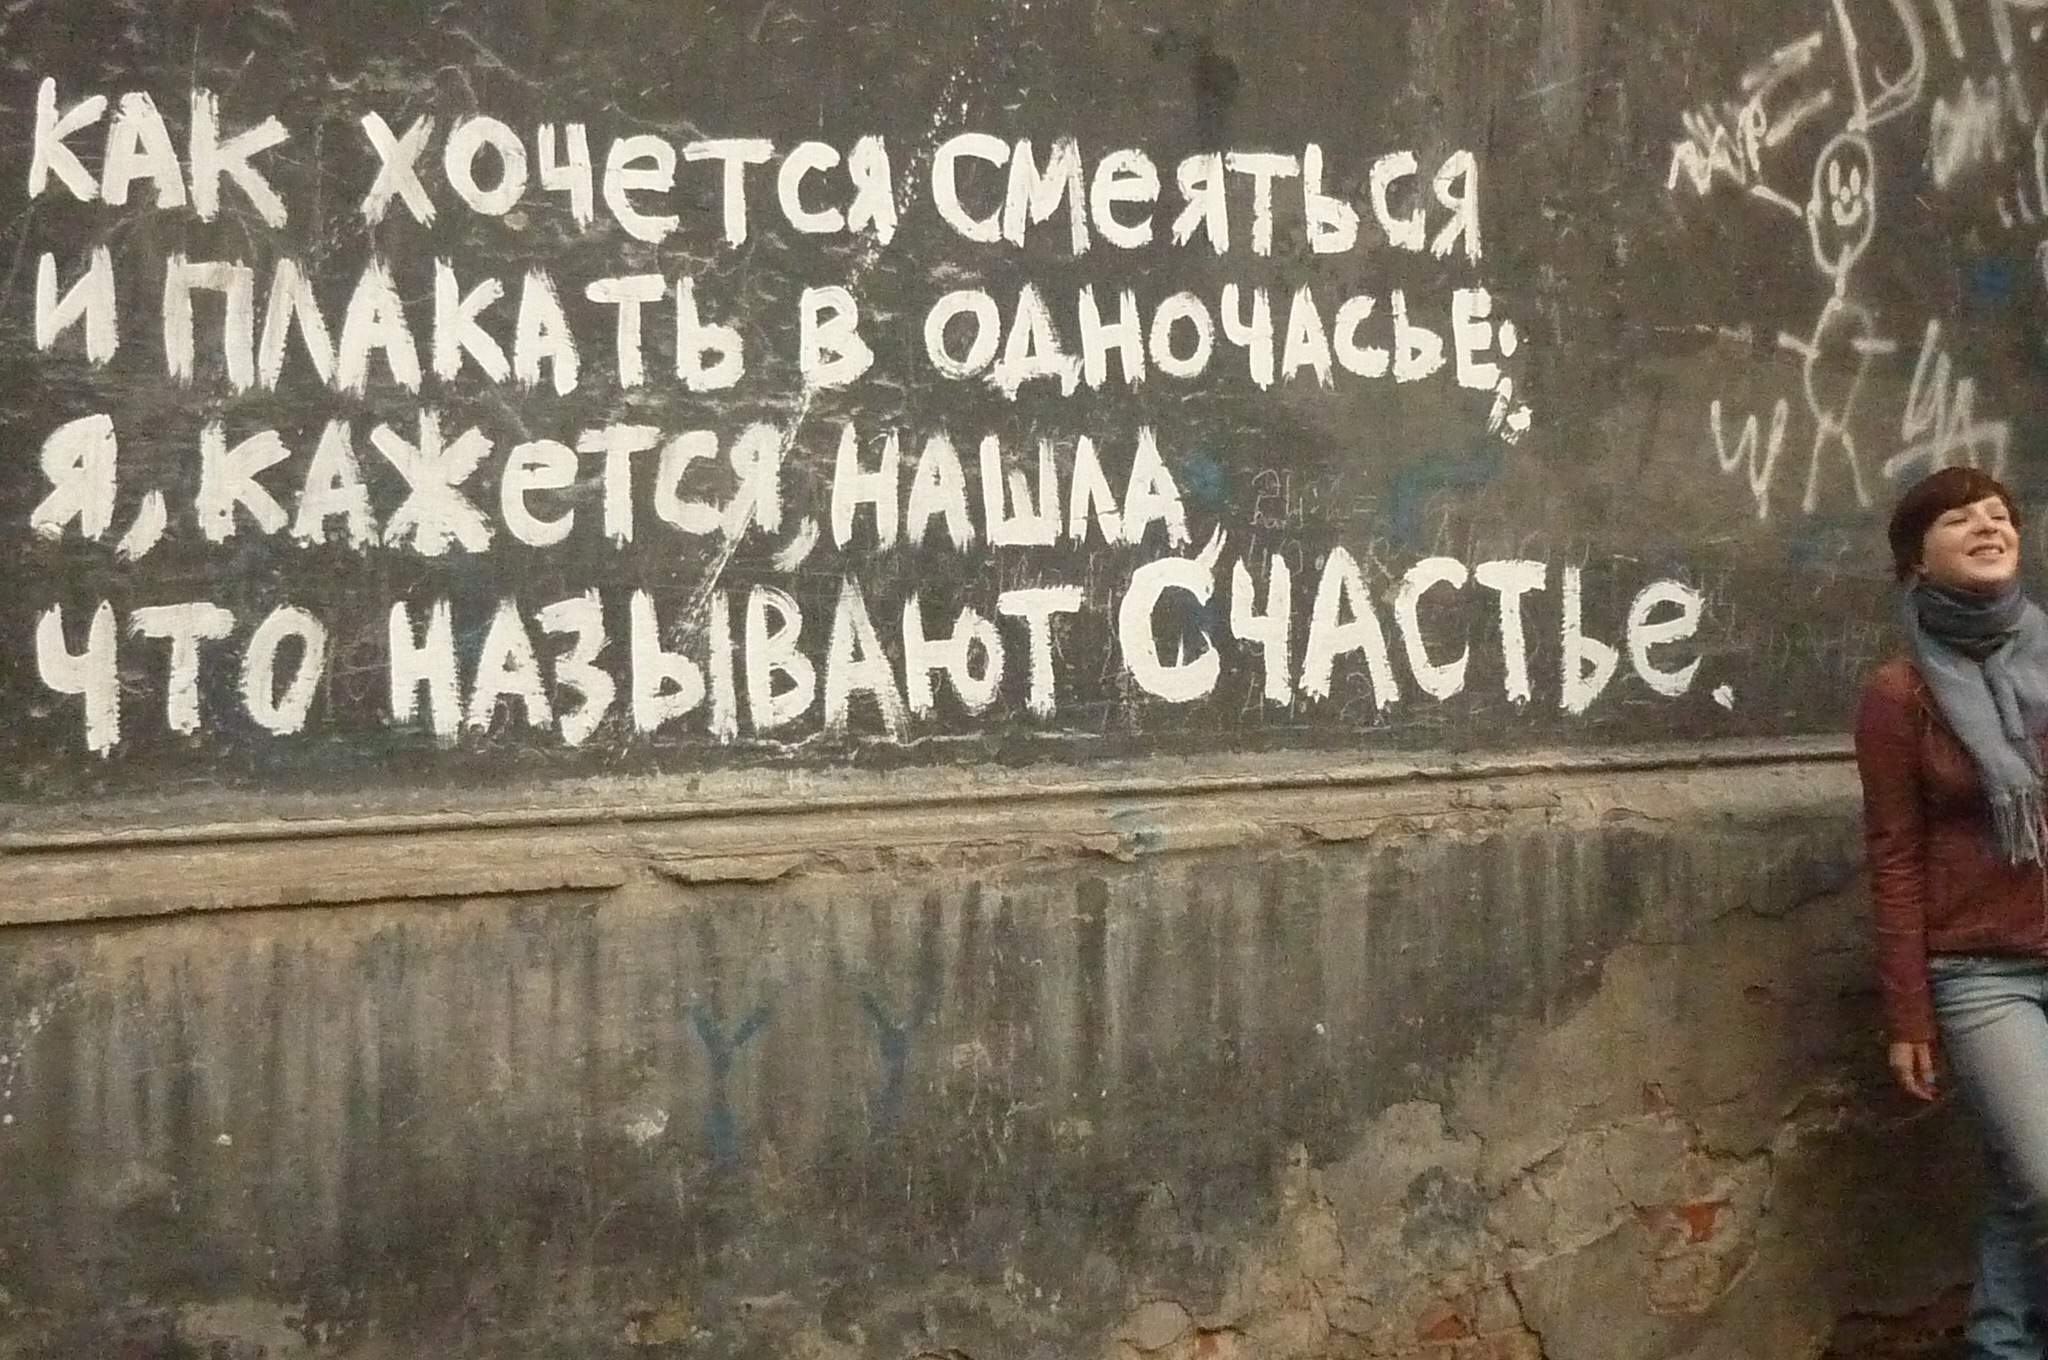 КАК ХОЧЕТСЯ СМЕЯТЬСЯ
И ПЛАКАТЬ В ОДНОЧАСЬЕ;
Я, КАЖЕТСЯ, НАШЛА,
ЧТО НАЗЫВАЮТ СЧАСТЬЕ.